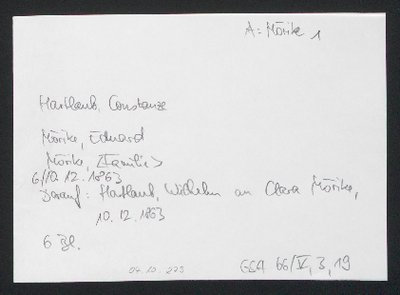 A: Mörike 1
Hartlaub, Constanze
Mörike, Eduard
Mörike, <Familie>
6/10.12.1863
Darauf: Hartlaub, Wilhelm an Clara Mörike,
10.12.1863
6 Bl.
04.10.223
GSA 66/IV, 3, 19